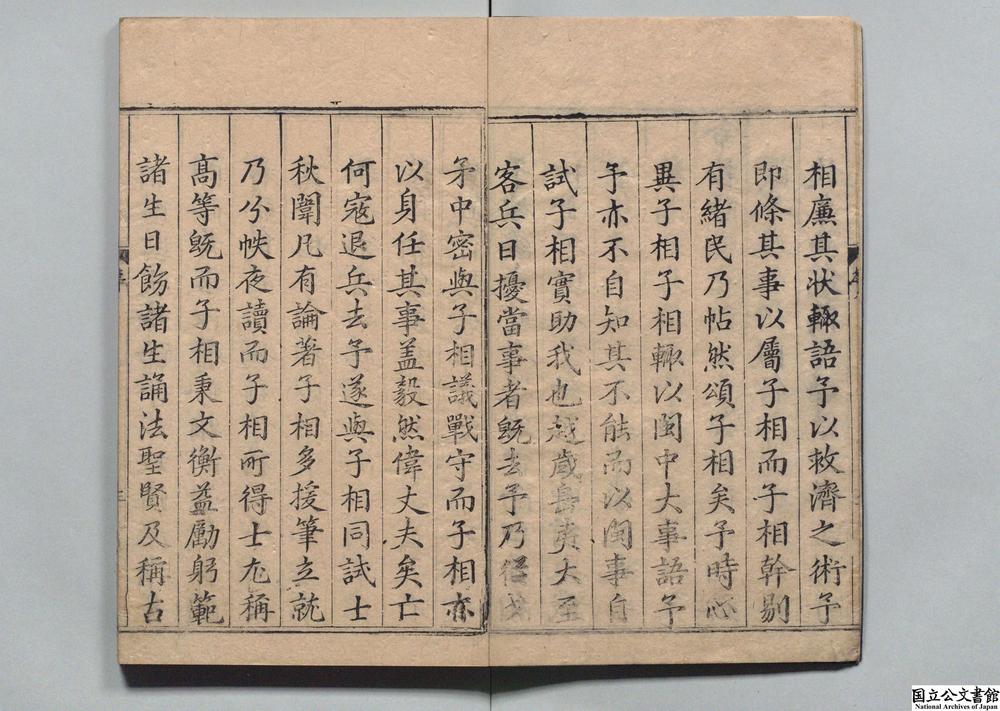 相廉其状輙語予以救濟之術予
即條其事以屬子相而子相幹剔
有緒民乃帖然頌子相矣予時心
異子相子相輙以閩中大事語予
予亦不自知其不能而以閩事自
試子相實助我也越歲島夷大至
客兵日擾當事者旣去予乃
矛中密與子相議戰守而子相亦
以身任其事盖毅然偉丈夫矣亡
何寇退兵去予遂與子相同試士
秋闈凡有論著子相多援筆立就
乃分帙夜讀而子相所得士尤稱
髙等旣而子相秉文衡益勵躬範
諸生日飭諸生誦法聖賢及稱古
国立公文書館
National Archives of Japan